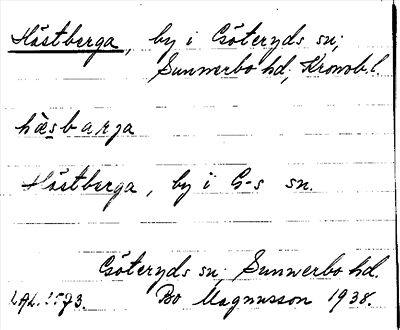 Höstberga, by i Göteryds sn;
Sunnerbo hd; Kronob. l.
hæsbarja
Höstberga, by i G-s sn.
Göteryds sn; Sunnerbo hd.
Bo Magnusson 1938.